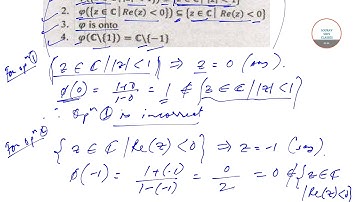 2. φ({z ∈ ℂ | Re(z) < 0}) ⊆ {z ∈ ℂ | Re(z) < 0}
3. φ is onto
4. φ(ℂ\{1}) = ℂ\{-1}
For opⁿ ① {z ∈ ℂ | |z| < 1} ⇒ z = 0 (say).
φ(0) = (1+0)/(1-0) = 1 ∉ {z ∈ ℂ | |z| < 1}
∴ Opⁿ ① is incorrect
For opⁿ ② {z ∈ ℂ | Re(z) < 0} ⇒ z = -1 (say).
φ(-1) = (1+(-1))/(1-(-1)) = 0/2 = 0 ∉ {z ∈ ℂ
| Re(z) < 0}